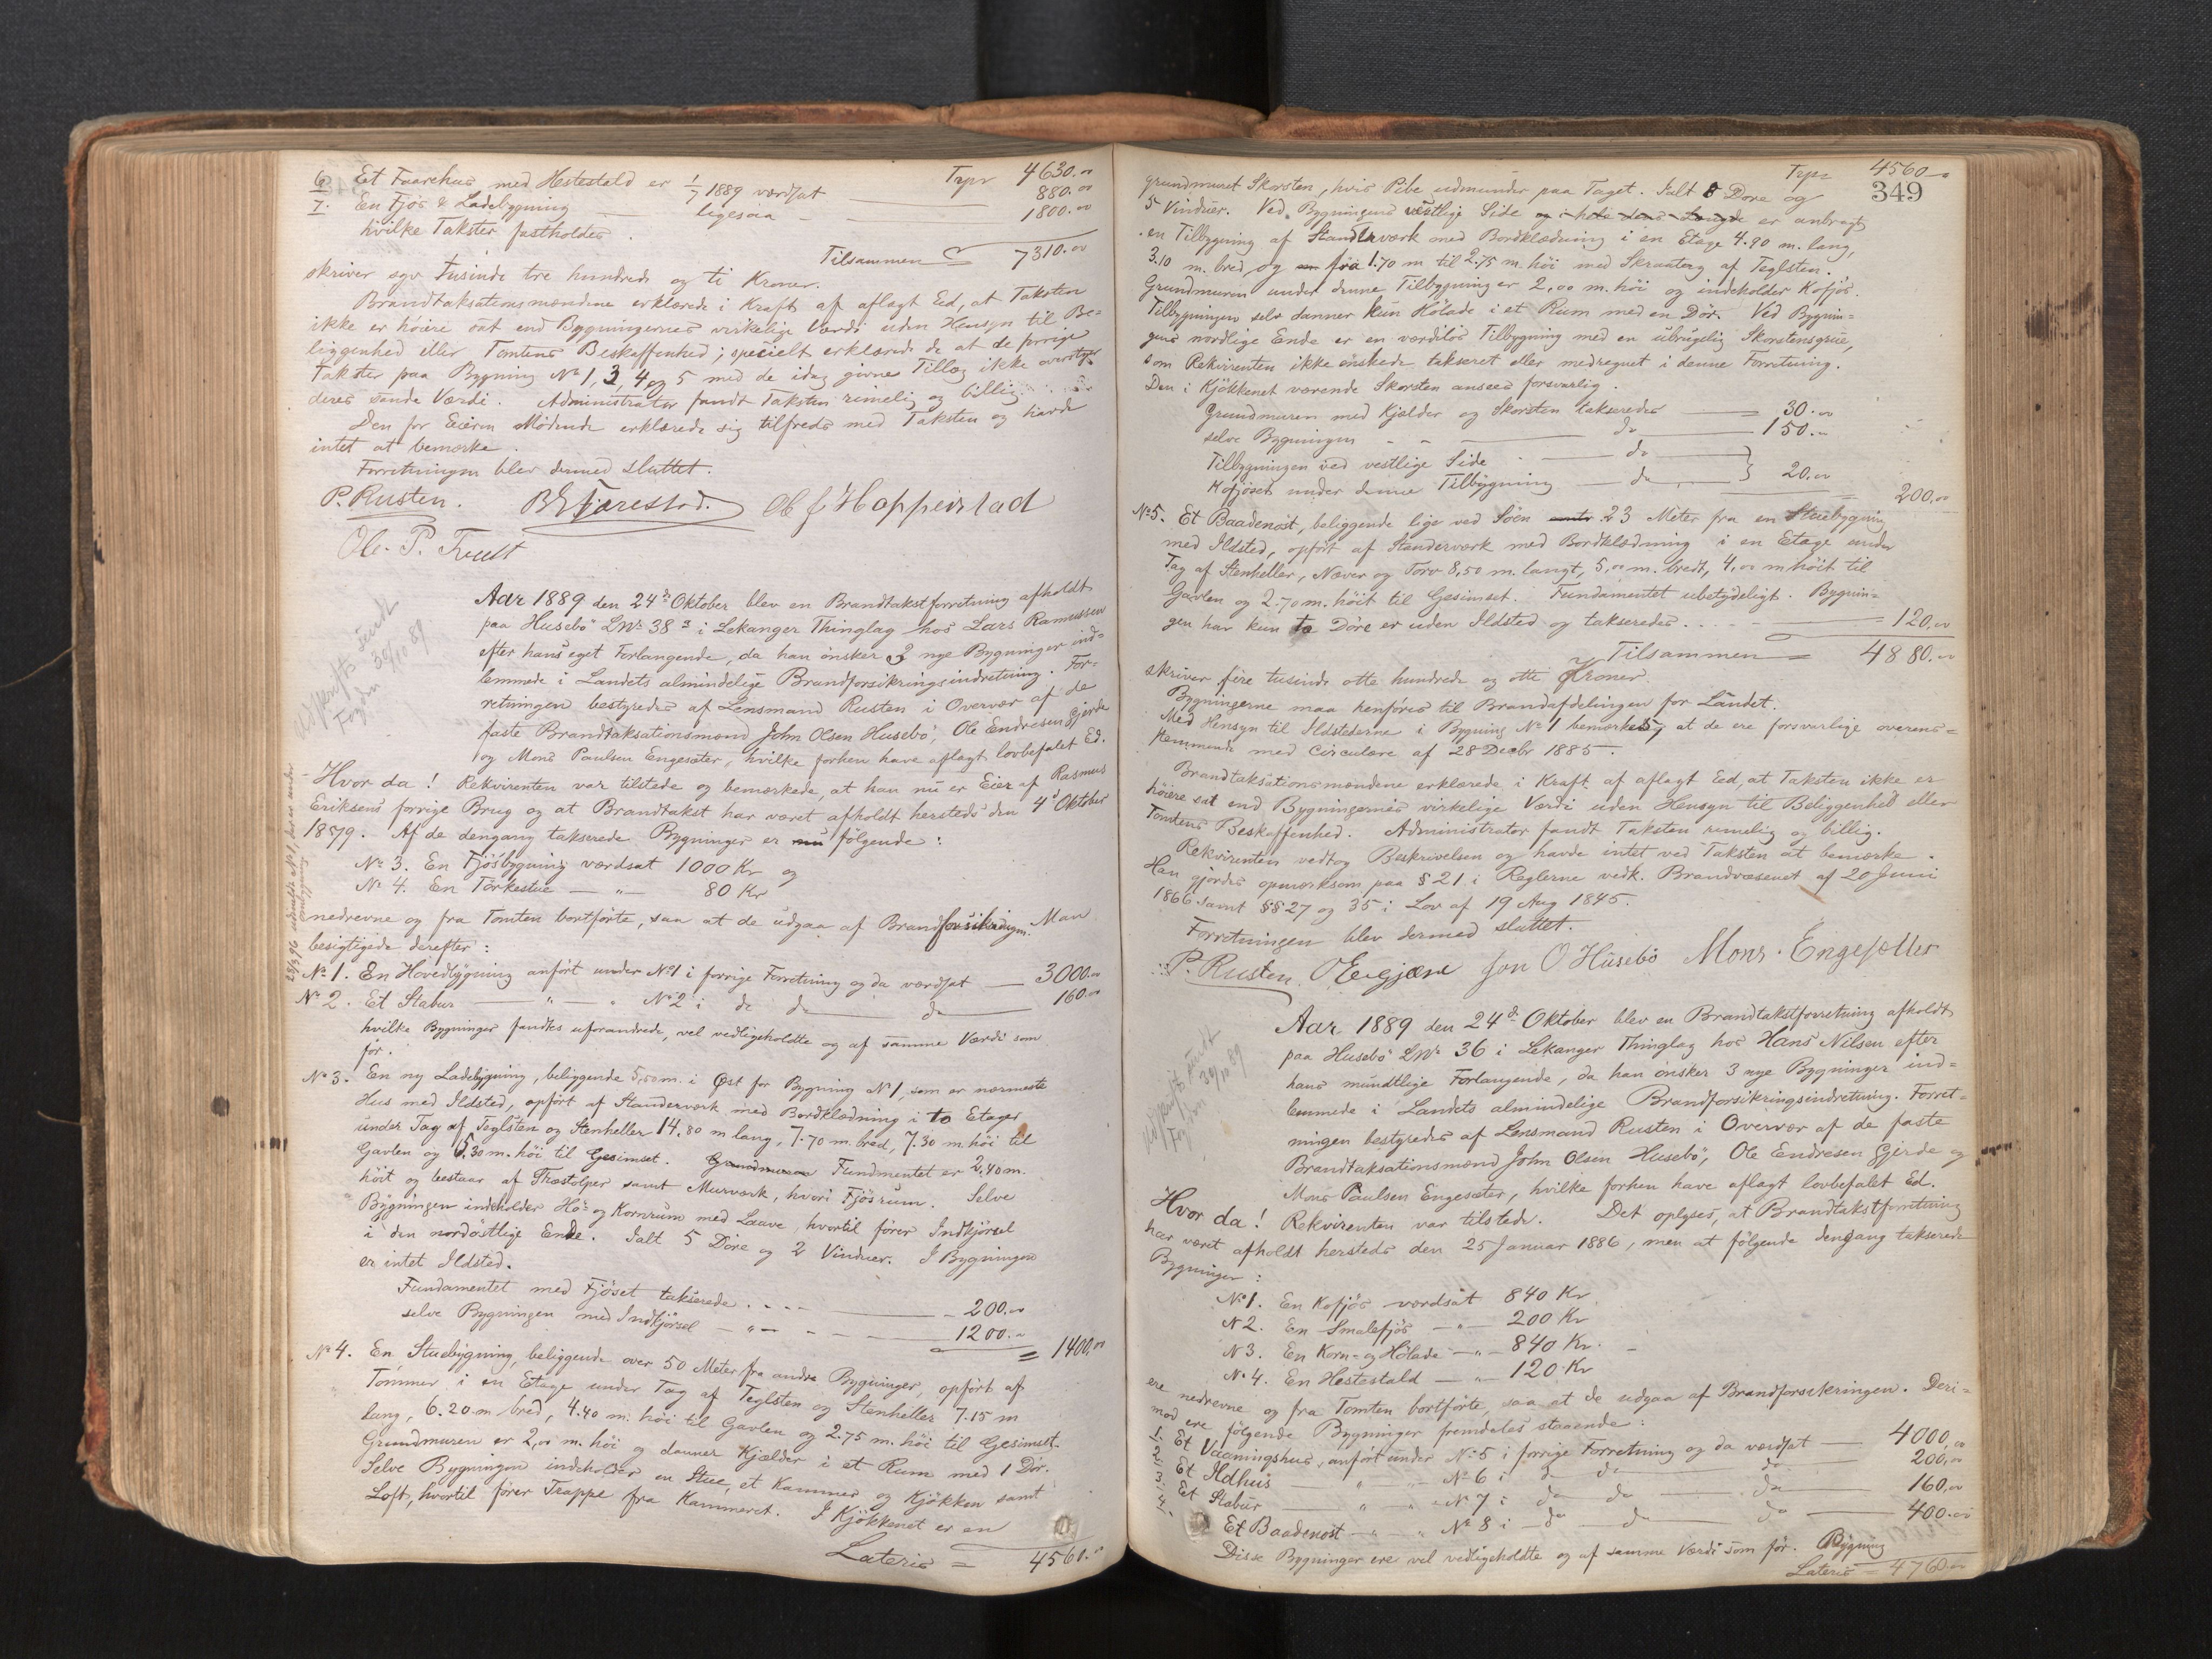 Trpr 4630.00
6 Et Faarehus med Hestestald er 1/7 1889 værdsat 880.00
7. En Fjøs & Ladebygning ligesaa 1800.00
hvilke Takster fastholdes.
Tilsammen 7310.00
skriver syv tusinde tre hundrede og ti Kroner.
Brandtaksationsmændene erklærede i Kraft af aflagt Ed, at Taksten
ikke er høiere sat end Bygningernes virkelige Værdi uden Hensyn til Be-
liggenhed eller Tomtens Beskaffenhed; specielt erklærede de at de forrige
Takster paa Bygning No 1, 3, 4 og 5 med de idag givne Tillæg ikke overstige
deres sande Værdi. Administrator fandt Taksten rimelig og billig.
Den for Eieren Mødende erklærede sig tilfreds med Taksten og havde
intet at bemærke.
Forretningen blev dermed sluttet.
P. Rusten. Ol J Hopperstad
Ole. P.
Aar 1889 den 24de Oktober blev en Brandtakstforretning afholdt
paa Husebø LNo 38 a i Lekanger Thinglag hos Lars Rasmussen
efter hans eget Forlangende, da han ønsker 3 nye Bygninger ind-
lemmede i Landets almindelige Brandforsikringsindretning. For-
retningen bestyredes af Lensmand Rusten i Overvær af de
faste Brandtaksationsmænd John Olsen Husebø, Ole Endresen Gjerde
og Mons Paulsen Engesæter, hvilke forhen have aflagt lovbefalet Ed.
Hvor da! Rekvirenten var tilstede og bemærkede, at han nu er Eier af Rasmus
Eriksens forrige Brug og at Brandtakst har været afholdt hersteds den 4de Oktober
1879. Af de dengang takserede Bygninger er nu følgende:
No 3. En Fjøsbygning værdsat 1000 Kr og
No 4. En Tørkestue — " — 80 Kr
nedrevne og fra Tomten bortførte, saa at de udgaa af Brandforsikringen. Man
besigtigede derefter:
No 1. En Hovedbygning anført under No 1 i forrige Forretning og da værdsat — 3000.00
No 2. Et Stabur — " — " No 2 i do do do 160.00
hvilke Bygninger fandtes uforandrede, vel vedligeholdte og af samme Værdi som
før.
No 3. En ny Ladebygning, beliggende 5,50 m. i Øst for Bygning No 1, som er nærmeste
Hus med Ildsted, opført af Standerværk med Bordklædning i to Etager
under Tag af Teglsten og Stenheller 14.80 m lang, 7.70 m. bred, 7.30 m høi til
Gavlen og 5.30 m. høi til Gesimset. Grundmuren Fundmentet er 2,40 m.
høit og bestaar af Træstolper samt Murværk, hvori Fjøsrum. Selve
Bygningen indeholder Hø- og Kornrum med Laave, hvortil fører Indkjørsel
i den nordøstlige Ende. Ialt 5 Døre og 2 Vinduer. I Bygningen
er intet Ildsted.
Fundamentet med Fjøset takserede. . . . 200.00
selve Bygningen med Indkjørsel — " — 1200.00
= 1400,00
No 4. En Stuebygning, beliggende over 50 Meter fra andre Bygninger, opført af
Tømmer i en Etage under Tag af Teglsten og Stenheller 7.15 m
lang, 6.20 m bred, 4.40 m. høi til Gavlen og 2.75 m. høi til Gesimset.
Grundmuren er 2,00 m. høi og danner Kjælder i et Rum med 1 Dør.
Selve Bygningen indeholder en Stue, et Kammer og Kjøkken samt
Loft, hvortil fører Trappe fra Kammeret. I Kjøkkenet er en
Lateris = 4560.00
Trpr 4560.
349
grundmuret Skorsten, hvis Pibe udmunder paa Taget. Ialt 8 Døre og
5 Vinduer. Ved Bygningens vestlige Side og i hele dens Længde er anbragt
en Tilbygning af Standerværk med Bordklædning i en Etage 4.90 m. lang,
3.10 m. bred og fra 1.70 m til 2.75 m. høi med Skraatag af Teglsten.
Grundmuren under denne Tilbygning er 2,00 m. høi og indeholder Kofjøs.
Tilbygningen selv danner kun Hølade i et Rum med en Dør. Ved Bygnin-
gens nordlige Ende er en værdiløs Tilbygning med en ubrugelig Skorstensgrue,
som Rekvirenten ikke ønskede takseret eller medregnet i denne Forretning.
Den i Kjøkkenet værende Skorsten ansees forsvarlig.
Grundmuren med Kjælder og Skorsten takseredes = 30.00
selve Bygningen — do — 150.00
Tilbygningen ved vestlige Side — do —
Kofjøset under denne Tilbygning — do — 20.00
= 200.00
No 5. Et Baadenøst, beliggende lige ved Søen 23 Meter fra en Stuebygning
med Ildsted, opført af Standerværk med Bordklædning i en Etage under
Tag af Stenheller, Næver og Torv 8,50 m. langt, 5,00 m. bredt, 4,00 m høit til
Gavlen og 2.70 m. høit til Gesimset. Fundamentet ubetydeligt. Bygnin-
gen har kun to Døre er uden Ildsted og takseredes. . . . 120.00
Tilsammen = 4880.00
skriver fire tusinde otte hundrede og otti Kroner.
Bygningerne maa henføres til Brandafdelingen for Landet.
Med Hensyn til Ildstederne i Bygning No 1 bemærkes, at de ere forsvarlige overens-
stemmende med Circulære af 28 Decbr 1885.
Brandtaksationsmændene erklærede i Kraft af aflagt Ed, at Taksten ikke er
høiere sat end Bygningernes virkelige Værdi uden Hensyn til Beliggenhed eller
Tomtens Beskaffenhed. Administrator fandt Taksten rimelig og billig.
Rekvirenten vedtog Beskrivelsen og havde intet ved Taksten at bemærke.
Han gjordes opmærksom paa § 21 i Reglerne vedk. Brandvæsenet af 20 Juni
1866 samt §§ 27 og 35 i Lov af 19 Aug 1845.
Forretningen blev dermed sluttet.
P. Rusten. O E Gjære Jon O Husebø Mons. Engesætter
Aar 1889 den 24de Oktober blev en Brandtakstforretning afholdt
paa Husebø LNo 36 i Lekanger Thinglag hos Hans Nilsen efter
hans mundtlige Forlangende, da han ønsker 3 nye Bygninger ind-
lemmede i Landets almindelige Brandforsikringsindretning. Forret-
ningen bestyredes af Lensmand Rusten i Overvær af de faste
Brandtaksationsmænd John Olsen Husebø, Ole Endresen Gjerde og
Mons Paulsen Engesæter, hvilke forhen have aflagt lovbefalet Ed.
Hvor da! Rekvirenten var tilstede. Det oplyses, at Brandtakstforretning
har været afholdt hersteds den 25 Januar 1886, men at følgende dengang takserede
Bygninger:
No 1. En Kofjøs værdsat 840 Kr
N 2. En Smalefjøs — " — 200 Kr
N 3. En Korn- og Hølade — " — 840 Kr.
No 4. En Hestestald — " — 120 Kr
ere nedrevne og fra Tomten bortførte, saa at de udgaa af Brandforsikringen. Deri-
mod ere følgende Bygninger fremdeles staaende:
1. Et Vaaningshus, anført under No 5 i forrige Forretning og da værdsat — 4000,00
2. Et Ildhus " " No 6 i do do do 200,00
3. Et Stabur " " N 7 i do do do 160,00
4. Et Baadenøst " " No 8 i do do do 400.00
Disse Bygninger ere vel vedligeholdte og af samme Værdi som før. Bygning
Lateris = 4760.00